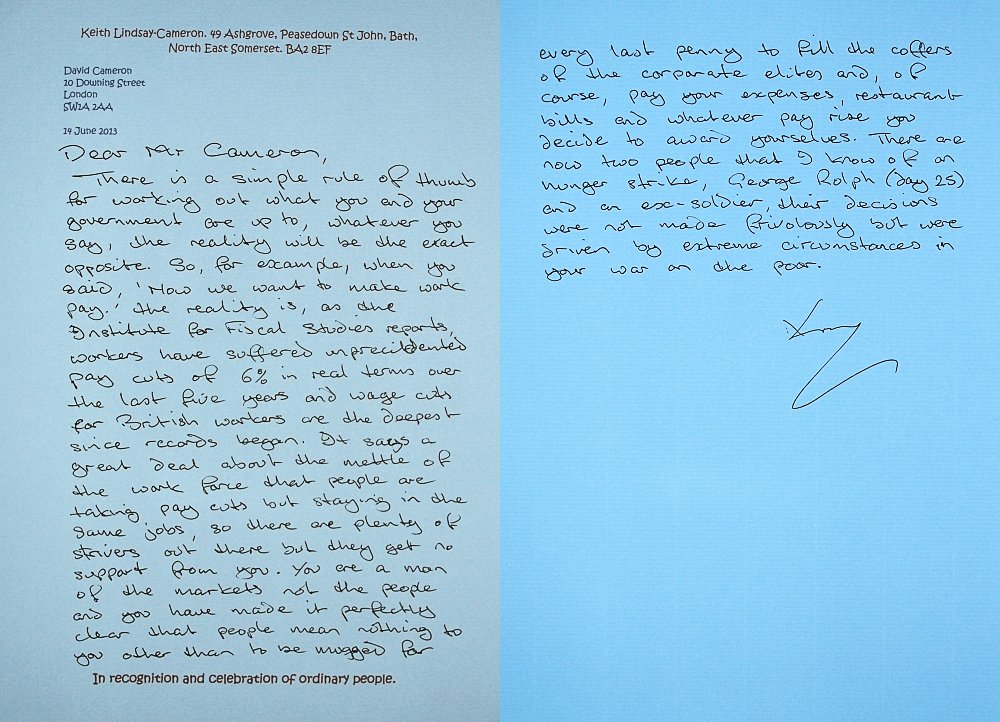 Keith Lindsay-Cameron. 49 Ashgrove, Peasedown St John, Bath,
North East Somerset. BA2 8EF
David Cameron
10 Downing Street
London
SW1A 2AA
14 June 2013
Dear Mr Cameron,
There is a simple rule of thumb
for working out what you and your
government are up to, whatever you
say, the reality will be the exact
opposite. So, for example, when you
said, 'Now we want to make work
pay.' the reality is, as the
Institute for Fiscal Studies reports,
workers have suffered unprecidented
pay cuts of 6% in real terms over
the last five years and wage cuts
for British workers are the deepest
since records began. It says a
great deal about the mettle of
the work force that people are
taking pay cuts but staying in the
same jobs, so there are plenty of
strivers out there but they get no
support from you. You are a man
of the markets not the people
and you have made it perfectly
clear that people mean nothing to
you other than to be mugged for
In recognition and celebration of ordinary people.
every last penny to fill the coffers
of the corporate elites and, of
course, pay your expenses, restaurant
bills and whatever pay rise you
decide to award yourselves. There are
now two people that I know of on
hunger strike, George Rolph (day 25)
and an ex-soldier, their decisions
were not made frivolously but were
driven by extreme circumstances in
your war on the poor.